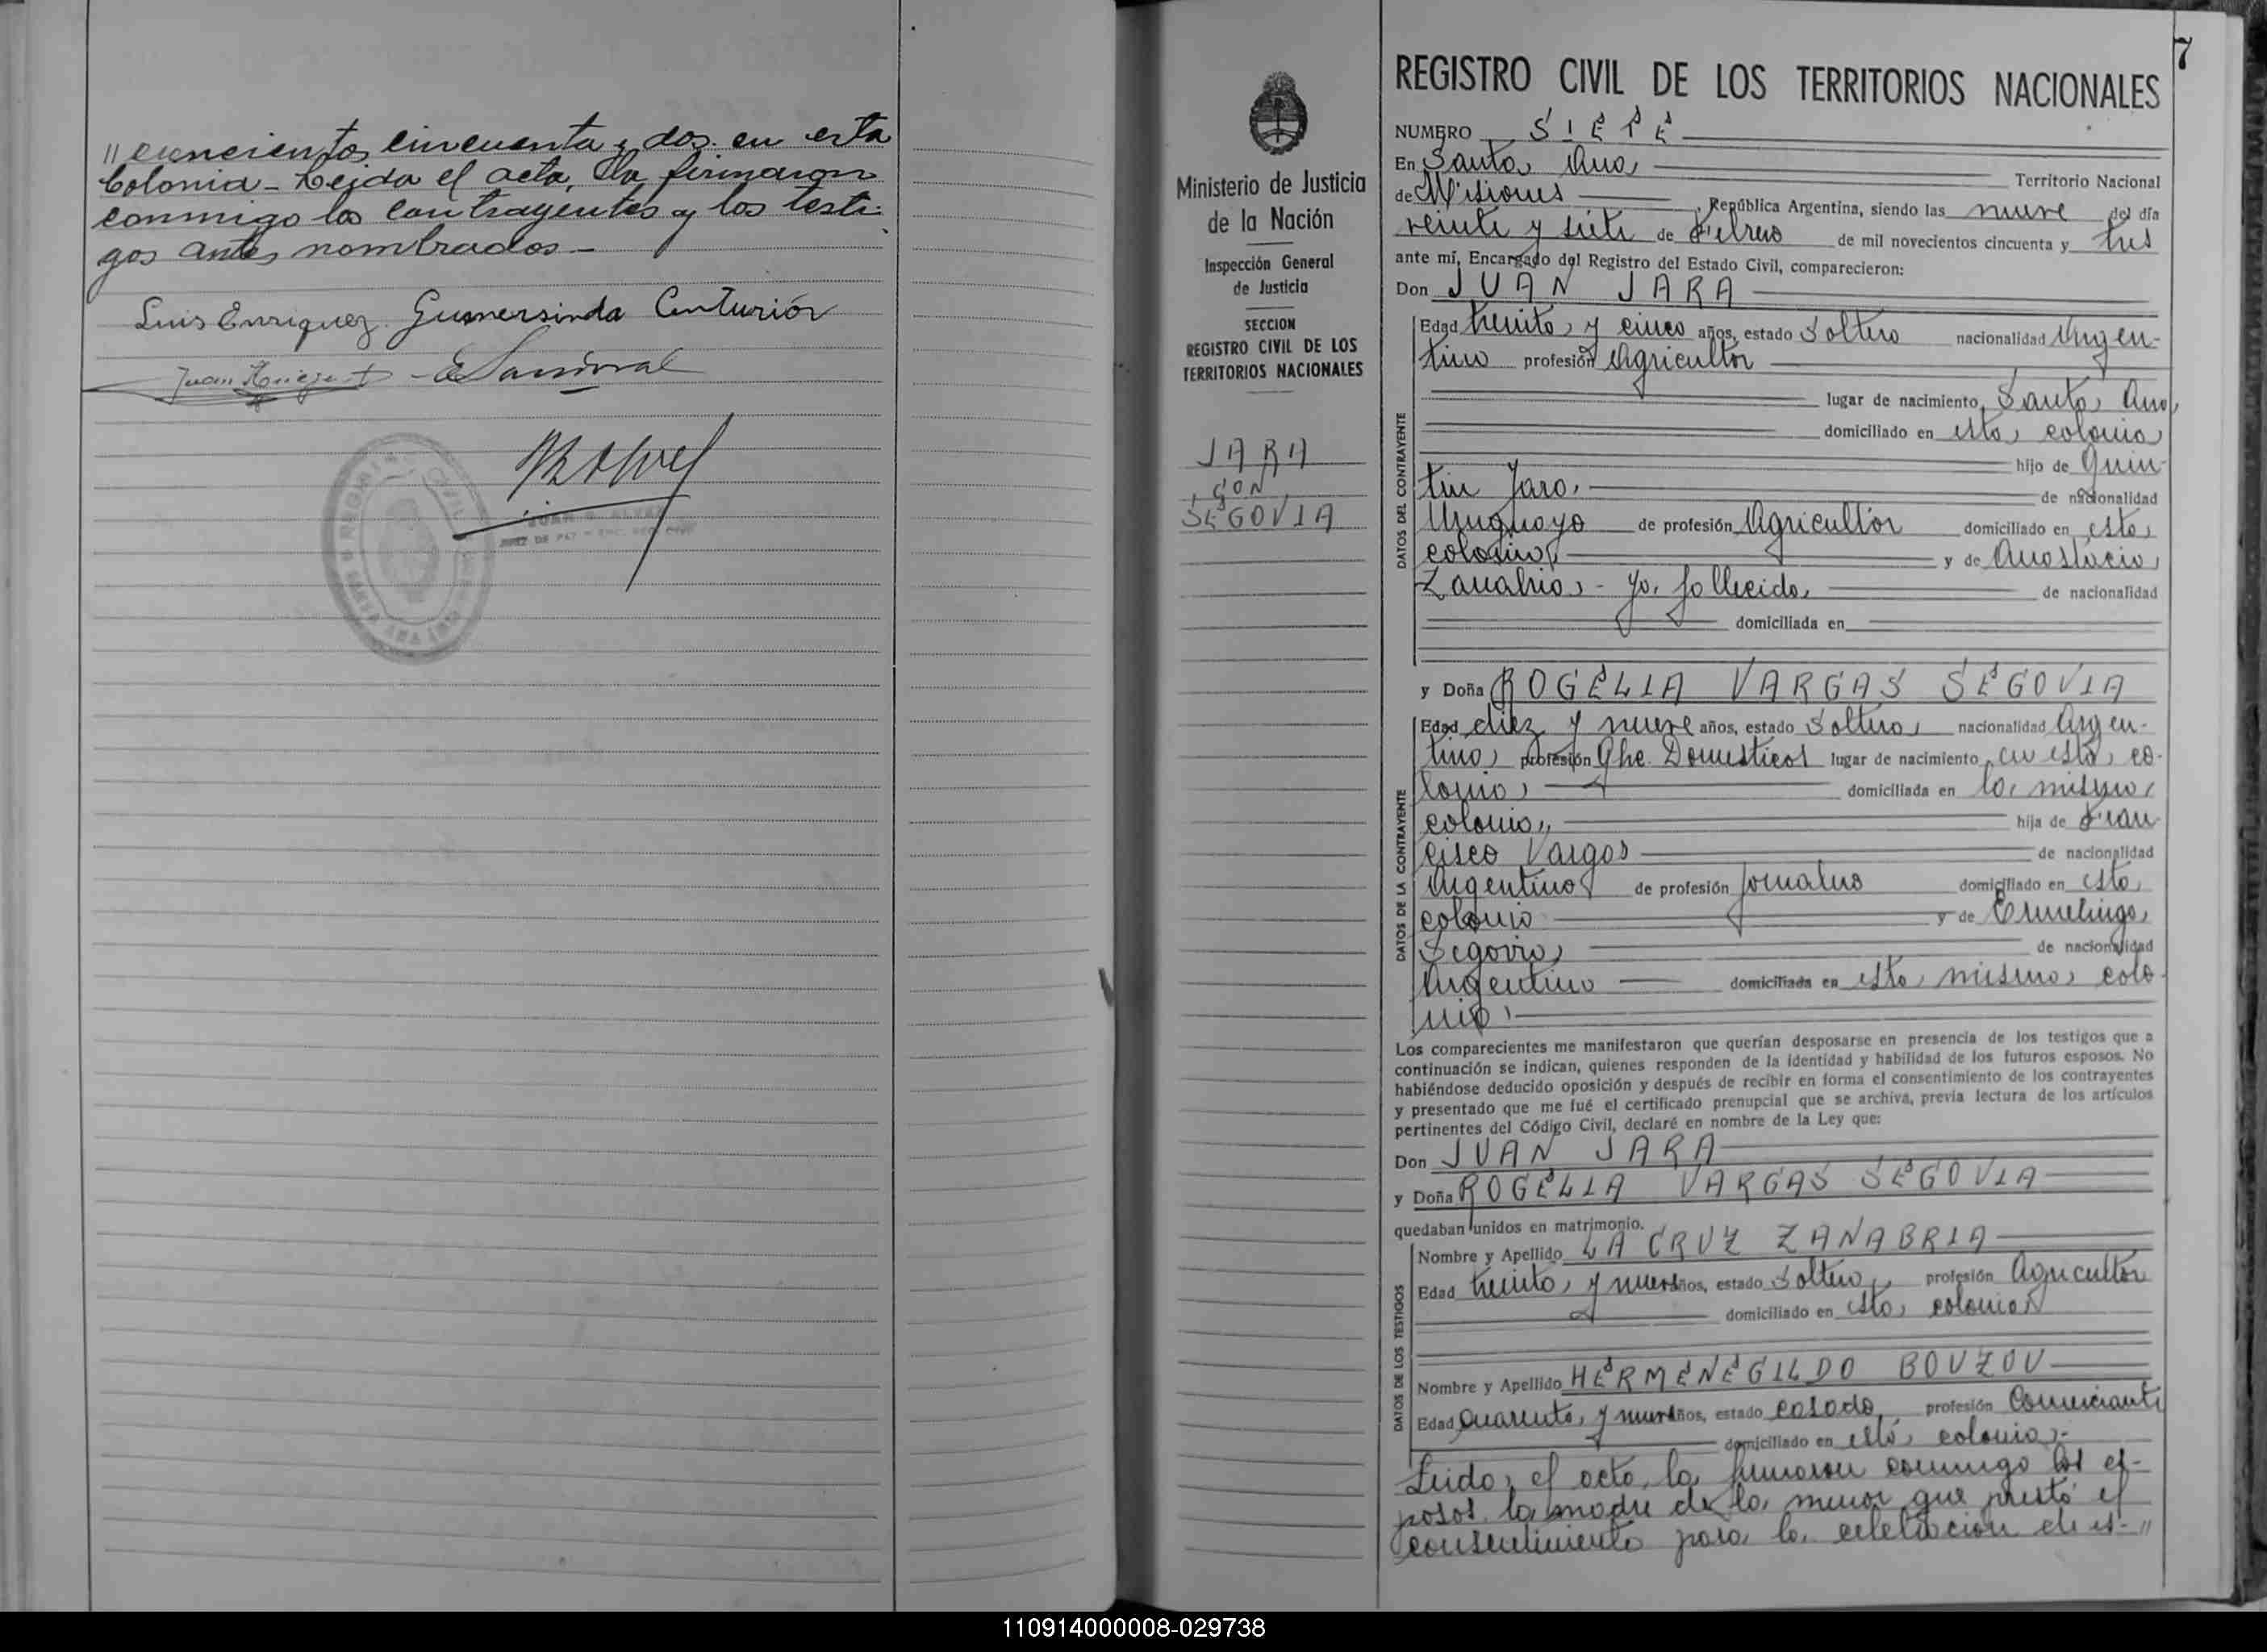 "vencientos cincuenta y dos en esta
Colonia - Leida el acta, la firmaron
conmigo los contrayentes y los testi-
gos antes nombrados -
Luis Enriquez Gumersinda Centurión
Juan E Sandoval
JUEZ DE PAZ
7
Ministerio de Justicia
de la Nación
Inspección General
de Justicia
SECCION
REGISTRO CIVIL DE LOS
TERRITORIOS NACIONALES
JARA
CON
SEGOVIA
REGISTRO CIVIL DE LOS TERRITORIOS NACIONALES
NUMERO SIETE
En Santa Ana Territorio Nacional
de Misiones, República Argentina, siendo las nueve del día
veinte y siete de Febrero de mil novecientos cincuenta y tres
ante mí, Encargado del Registro del Estado Civil, comparecieron:
Don JUAN JARA
DATOS DEL CONTRAYENTE
Edad treinta y cinco años, estado Soltero nacionalidad Argen-
tino profesión Agricultor
lugar de nacimiento Santa Ana
domiciliado en esta colonia
hijo de Quin-
tin Jara, de nacionalidad
Uruguayo de profesión Agricultor domiciliado en esta
colonia y de Anastacia
Zanabria - ya fallecida de nacionalidad
domiciliada en
y Doña ROGELIA VARGAS SEGOVIA
DATOS DE LA CONTRAYENTE
Edad diez y nueve años, estado Soltera nacionalidad Argen-
tina profesión Qhc. Domesticos lugar de nacimiento en esta co-
lonia domiciliada en la misma
colonia hija de Fran-
cisco Vargas de nacionalidad
Argentino de profesión Jornalero domiciliado en esta
colonia y de Ermelinga
Segovia de nacionalidad
Argentina domiciliada en esta misma colo-
nia
Los comparecientes me manifestaron que querían desposarse en presencia de los testigos que a
continuación se indican, quienes responden de la identidad y habilidad de los futuros esposos. No
habiéndose deducido oposición y después de recibir en forma el consentimiento de los contrayentes
y presentado que me fué el certificado prenupcial que se archiva, previa lectura de los artículos
pertinentes del Código Civil, declaré en nombre de la Ley que:
Don JUAN JARA
y Doña ROGELIA VARGAS SEGOVIA
quedaban unidos en matrimonio.
DATOS DE LOS TESTIGOS
Nombre y Apellido LA CRUZ ZANABRIA
Edad treinta y nueve años, estado Soltero profesión Agricultor
domiciliado en esta colonia
Nombre y Apellido HERMENEGILDO BOUZOU
Edad Cuarenta y nueve años, estado casado profesión Comerciante
domiciliado en esta colonia.-
Leida el acta la firmaron conmigo los es-
posos la madre de la menor que prestó el
consentimiento para la celebracion de es-"
110914000008-029738